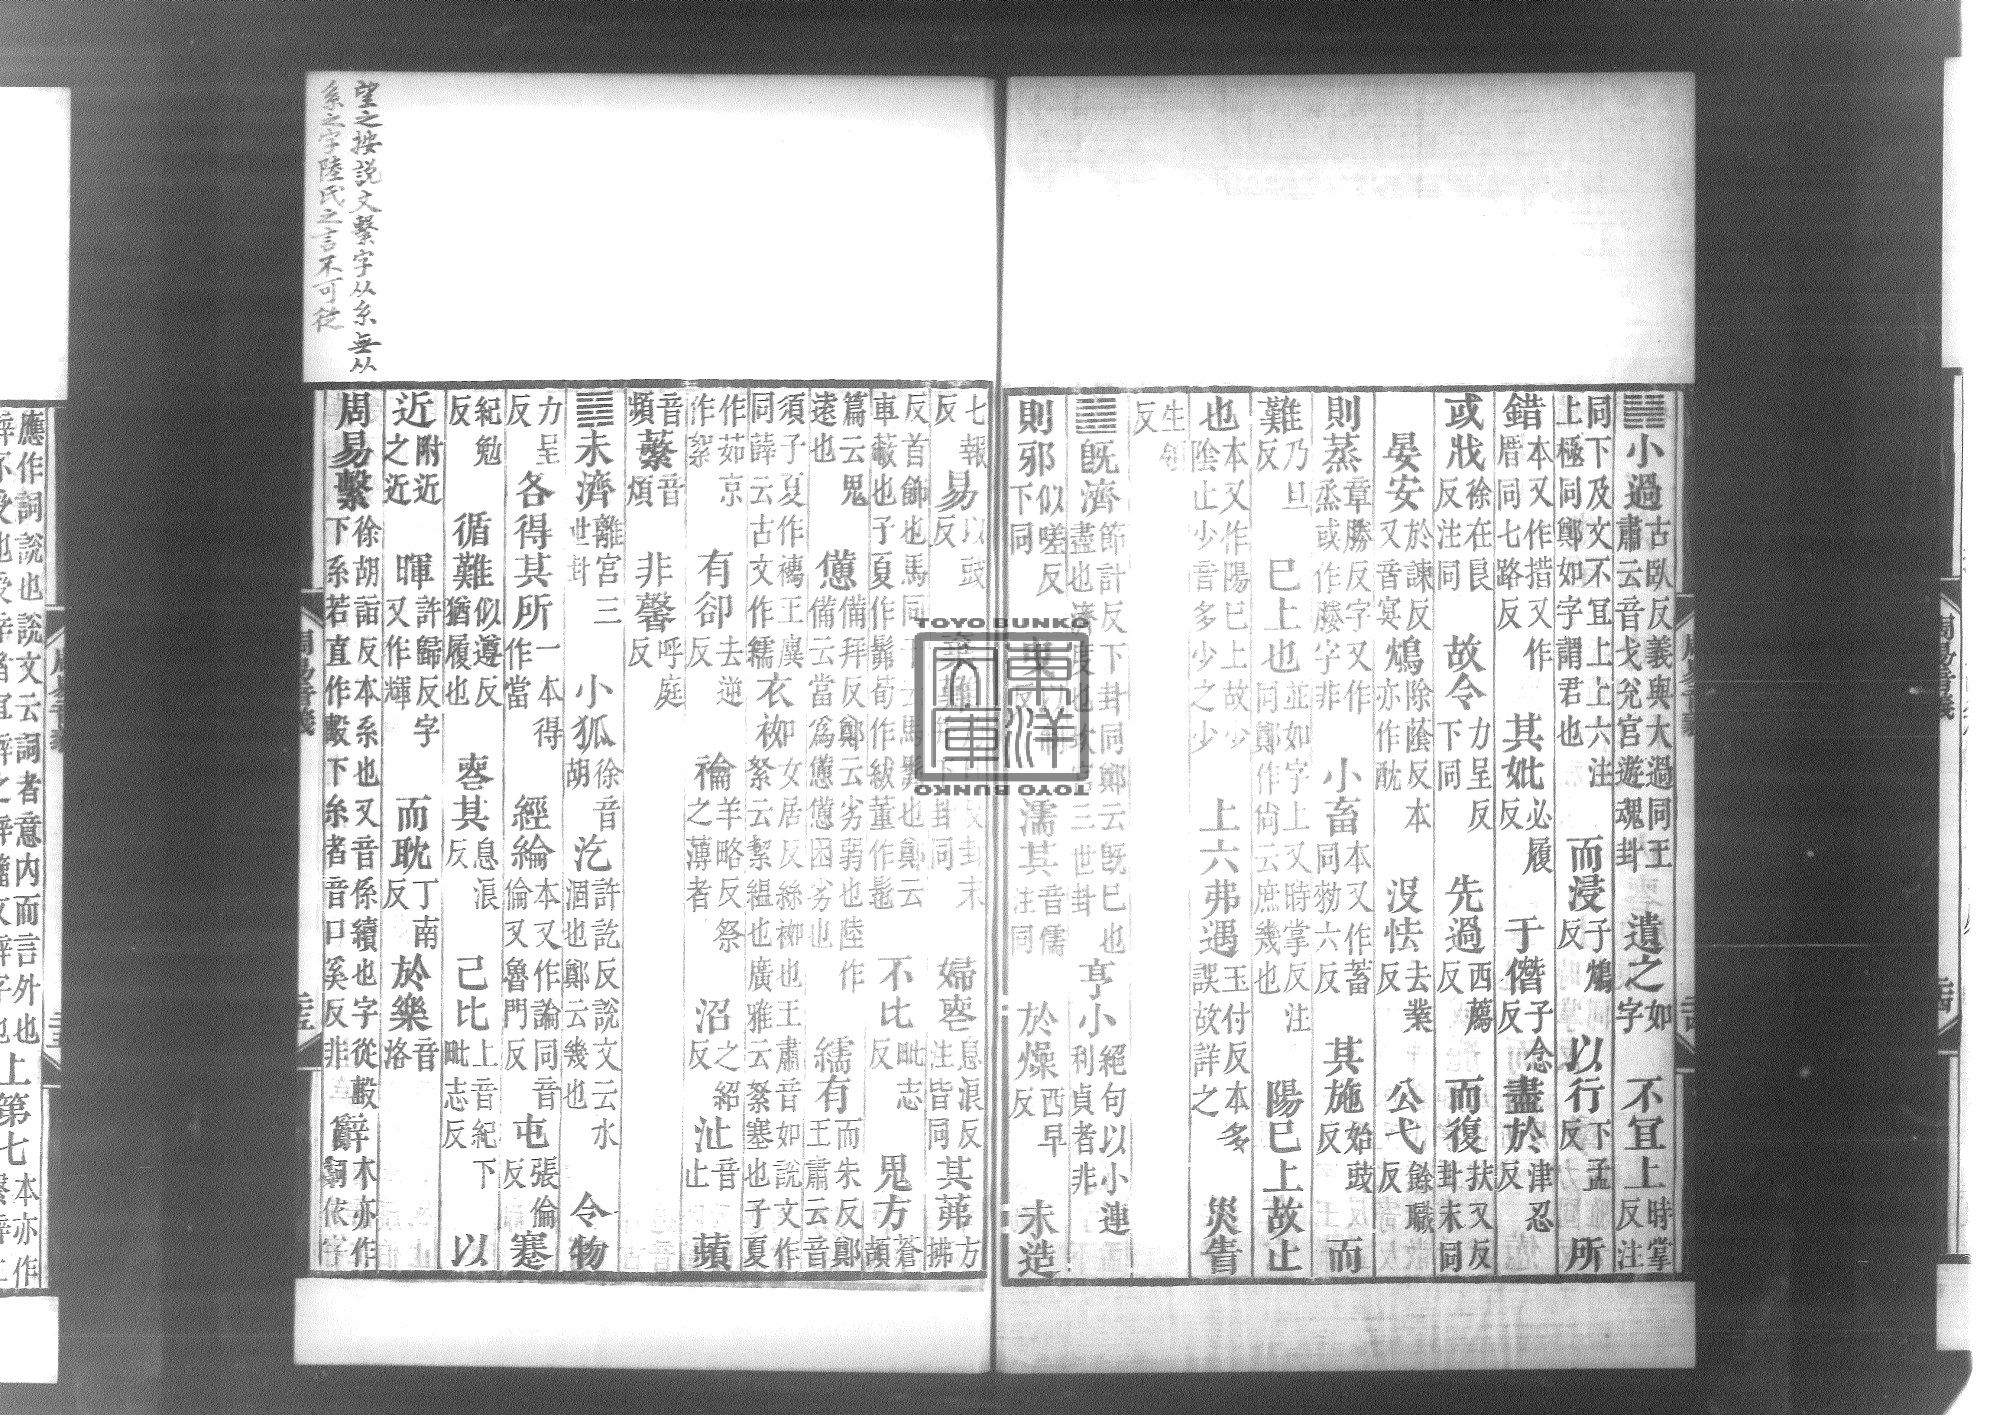 望之按說文繫字从糸無从
糸之字陸氏之言不可從
䷽小過古臥反義與大過同王肅云音戈兌宮遊魂卦 遺之如字 不宜上時掌反注
同下及文不冝上上六注上極同鄭如字謂君也 而浸子鴆反 以行下孟反 所
錯本又作措又作厝同七路反 其妣必履反 于僭子念反 盡於津忍反
或戕徐在良反注同 故令力呈反下同 先過西薦反 而復扶又反卦末同
晏安於諫反又音㝠 鴆除蔭反本亦作酖 沒怯去業反 公弋餘職反
則蒸章勝反字又作烝或作字非 小畜本又作蓄同勑六反 其施始豉反 而
難乃旦反 巳上也並如字上又時掌反注同鄭作尚云庶幾也 陽巳上故止
也本又作陽巳上故少陰止少音多少之少 上六弗遇玉付反本多誤故詳之 災眚
生領反
䷾既濟節計反下卦同鄭云旣巳也盡也濟度也坎宮三世卦 亨小絕句以小連利貞者非
則邪似嗟反下同 曳 濡其音儒注同 於燥西早反 未造
七報反 易以豉反 棄難 卦末卦同 婦喪息浪反注皆同 其茀方拂
反首飾也馬同干云馬髴也鄭云車蔽也子夏作髴荀作紱董作髢 不比毗志反 鬼方蒼頡
篇云鬼遠也 憊備拜反鄭云劣弱也陸作備云當爲憊憊困劣也 繻有而朱反鄭王肅云音
須子夏作襦王廙同薛云古文作繻 衣袽女居反絲袽也王肅音如說文作絮云緼也廣雅云絮塞也子夏
作茹京作絮 有郤去逆反 禴羊略反祭之薄者 沼之紹反 沚音止 蘋
音頻 蘩音煩 非馨呼庭反
䷿未濟離宮三世卦 小狐徐音胡 汔許訖反說文云水涸也鄭云幾也 令物
力呈反 各得其所一本得作當 經綸本又作論同音倫又魯門反 屯張倫反 蹇
紀勉反 循難似遵反猶履也 喪其息浪反 己比上音紀下毗志反 以
近附近之近 暉許歸反字又作輝 而耽丁南反 於樂音洛
周易繫徐胡詣反本系也又音係續也字從毄下系若直作毄下糸者音口奚反非 辭本亦作嗣依字
應作詞說也說文云詞者意內而言外也
辤不受也受辛者宜辤之辤籀文辭字也 上第七本亦作
周易音義
TOYO BUNKO
東洋文庫
TOYO BUNKO